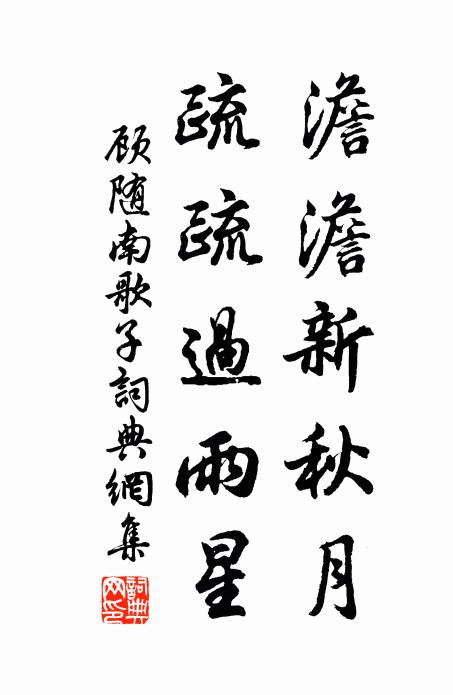 澹澹新秋月
疏疏過雨星
顾随南歌子詞典網集
詞典網印